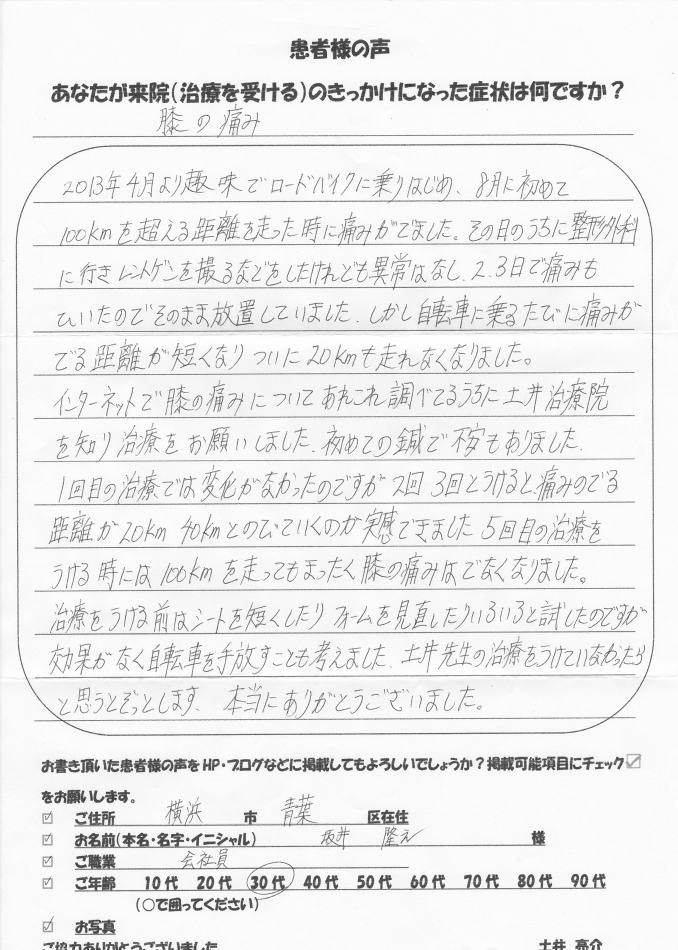 患者様の声
あなたが来院(治療を受ける)のきっかけになった症状は何ですか?
膝の痛み
2013年4月より趣味でロードバイクに乗りはじめ、8月に初めて
100kmを超える距離を走った時に痛みがでました。その日のうちに整形外科
に行きレントゲンを撮るなどをしたけれども異常はなし、2、3日で痛みも
ひいたのでそのまま放置していました、しかし自転車に乗るたびに痛みが
でる距離が短くなりついに20kmも走れなくなりました。
インターネットで膝の痛みについてあれこれ調べてるうちに土井治療院
を知り治療をお願いしました、初めての鍼で不安もありました、
1回目の治療では変化がなかったのですが2回3回とうけると、痛みのでる
距離が20km 40kmとのびていくのが実感できました5回目の治療を
うける時には100kmを走ってもまったく膝の痛みはでなくなりました。
治療をうける前はシートを短くしたりフォームを見直したりいろいろと試したのですが
効果がなく自転車を手放すことも考えました、土井先生の治療をうけていなかったら
と思うとぞっとします、本当にありがとうございました。
お書き頂いた患者様の声をHP・ブログなどに掲載してもよろしいでしょうか?掲載可能項目にチェック☑
をお願いします。
☑ ご住所 横浜 市 青葉 区在住
☑ お名前(本名・名字・イニシャル) 坂井 隆 様
☑ ご職業 会社員
☑ ご年齢 10代 20代 30代 40代 50代 60代 70代 80代 90代
(○で囲ってください)
☑ お写真
ご協力ありがとうございました 土井 亮介